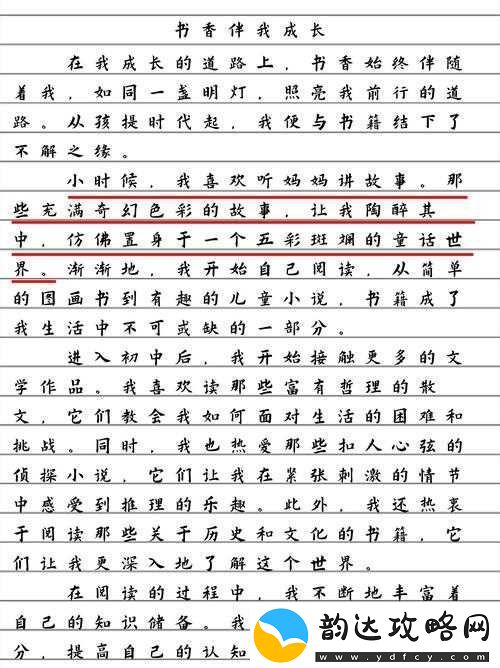 书香伴我成长
在我成长的道路上，书香始终伴随
着我，如同一盏明灯，照亮我前行的道
路。从孩提时代起，我便与书籍结下了
不解之缘。
小时候，我喜欢听妈妈讲故事。那
些充满奇幻色彩的故事，让我陶醉其
中，仿佛置身于一个五彩斑斓的童话世
界。渐渐地，我开始自己阅读，从简单
的图画书到有趣的儿童小说，书籍成了
我生活中不可或缺的一部分。
进入初中后，我开始接触更多的文
学作品。我喜欢读那些富有哲理的散
文，它们教会我如何面对生活的困难和
挑战。同时，我也热爱那些扣人心弦的
侦探小说，它们让我在紧张刺激的情节
中感受到推理的乐趣。此外，我还热衷
于阅读那些关于历史和文化的书籍，它
们让我更深入地了解这个世界。
在阅读的过程中，我不断地丰富着
自己的知识储备。我
分，提高自己的认知
韵达攻略网
www.ydfcy.com